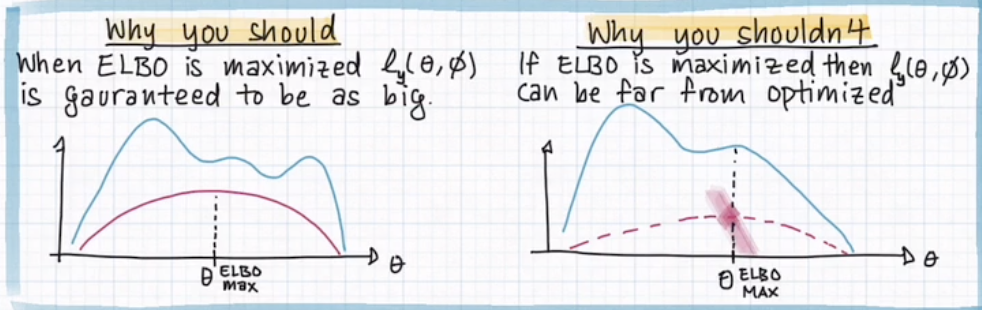 Why you should
When ELBO is maximized ℓy(θ,ϕ)
is gauranteed to be as big.
θ ELBO max
θ
Why you shouldn't
If ELBO is maximized then ℓy(θ,ϕ)
can be far from optimized
θ ELBO MAX
θ